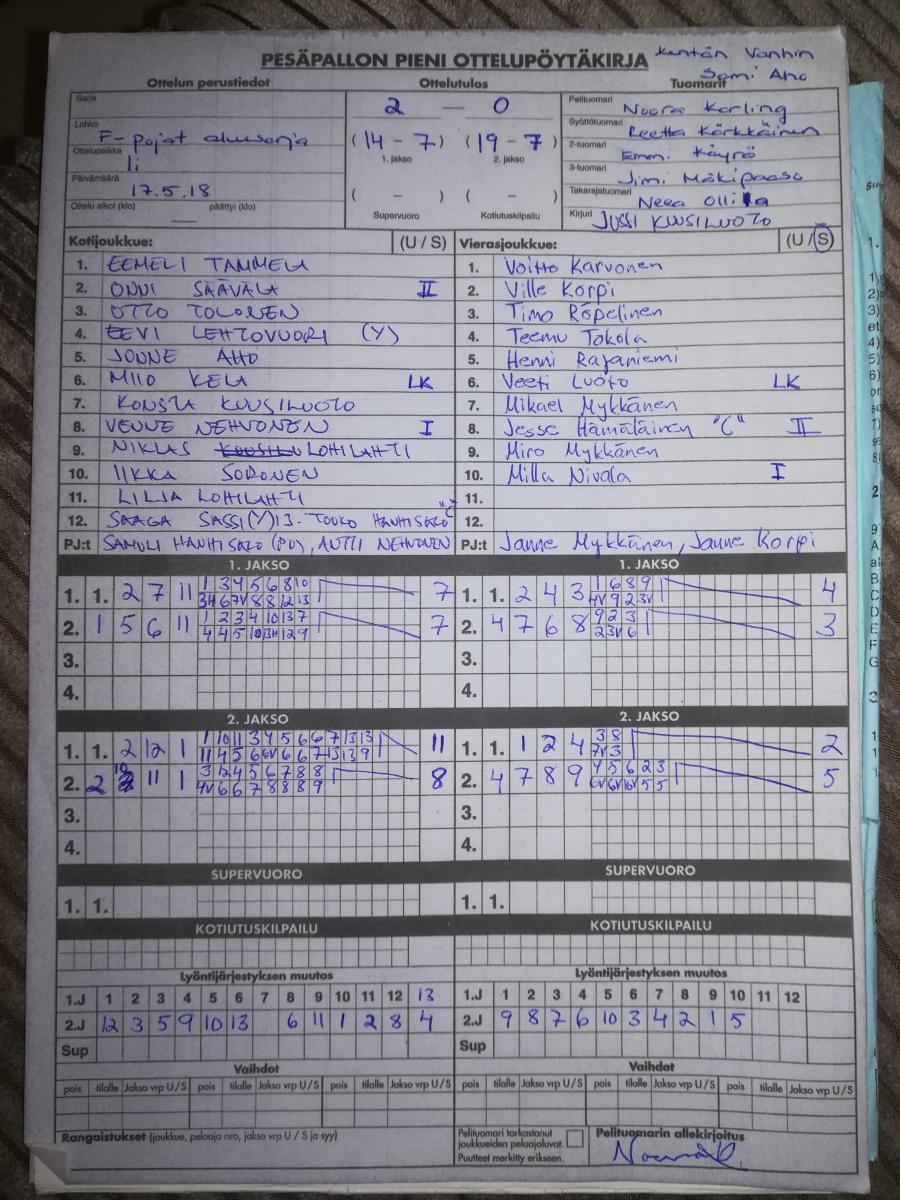 PESÄPALLON PIENI OTTELUPÖYTÄKIRJA
Kentän Vanhin
Sami Aho
Ottelun perustiedot
Ottelutulos
Tuomarit
Sarja
2 — 0
Pelituomari
Lohko
F-pojat aluesarja
(14 - 7) (19 - 7)
Syöttötuomari Reetta Kärkkäinen
Ottelupaikka
Ii
1. jakso 2. jakso
2-tuomari Emmi Käyrä
Päivämäärä
17.5.18
( - ) ( - )
3-tuomari Jimi Mäkipaaso
Ottelu alkoi (klo) päättyi (klo)
Supervuoro Kotiutuskilpailu
Takarajatuomari Neea Ollila
Kirjuri JUSSI KUUSILUOTO
Kotijoukkue: (U / S)
Vierasjoukkue: (U / S)
1. EEMELI TAMMELA
1. Voitto Karvonen
2. ONNI SÄÄVÄLÄ II
2. Ville Korpi
3. OTTO TOLONEN
3. Timo Röpelinen
4. EEVI LEHTOVUORI (Y)
4. Teemu Tokola
5. JONNE AHO
5. Henni Rajaniemi
6. MIIO KELA LK
6. Veeti Luoto LK
7. KONSTA KUUSILUOTO
7. Mikael Mykkänen
8. VENNE NEHVONEN I
8. Jesse Hämäläinen "C" II
9. NIKLAS LOHILAHTI
9. Miro Mykkänen
10. IIKKA SORONEN
10. Milla Nivala I
11. LILJA LOHILAHTI
11.
12. SAAGA SASSI(Y) 13. TOUKO HANHISALO "C"
12.
PJ:t SAMULI HANHISALO (PJ), ANTTI NEHVONEN
PJ:t Janne Mykkänen, Janne Korpi
1. JAKSO
1. JAKSO
1. 1. 2 7 11 1 3 4 5 6 8 10 7
3H 6 7V 8 8 12 13
1. 1. 2 4 3 1 6 8 9 4
4V 9 2 3V
2. 1 5 6 11 1 2 3 4 10 13 7 7
4 4 5 10 13H 12 9
2. 4 7 6 8 9 2 3 3
2 3V 6
3.
3.
4.
4.
2. JAKSO
2. JAKSO
1. 1. 2 12 1 1 10 11 3 4 5 6 6 7 13 13 11
11 4 5 6 6V 6 6 7 13 13 9
1. 1. 1 2 4 3 8 2
7V 3
2. 2 10 11 1 3 12 4 5 6 7 8 8 8
4V 6 6 7 8 8 8 9
2. 4 7 8 9 4 5 6 2 3 5
6V 6V 10V 5 5
3.
3.
4.
4.
SUPERVUORO
SUPERVUORO
1. 1.
1. 1.
KOTIUTUSKILPAILU
KOTIUTUSKILPAILU
Lyöntijärjestyksen muutos
Lyöntijärjestyksen muutos
1.J 1 2 3 4 5 6 7 8 9 10 11 12 13
1.J 1 2 3 4 5 6 7 8 9 10 11 12
2.J 12 3 5 9 10 13 6 11 1 2 8 4
2.J 9 8 7 6 10 3 4 2 1 5
Sup
Sup
Vaihdot
Vaihdot
pois tilalle Jakso vrp U / S pois tilalle Jakso vrp U / S pois tilalle Jakso vrp U / S
pois tilalle Jakso vrp U / S pois tilalle Jakso vrp U / S pois tilalle Jakso vrp U / S
Rangaistukset (joukkue, pelaaja nro, jakso vrp U / S ja syy)
Pelituomari tarkastanut
joukkueiden pelaajaluvat.
Puutteet merkitty erikseen.
Pelituomarin allekirjoitus